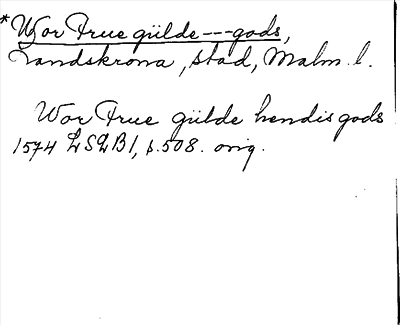 *Wor Frue gülde---gods,
Landskrona, stad, Malm. l.
Wor Frue gülde hendis gods
1574 LSLB1, s.508. orig.